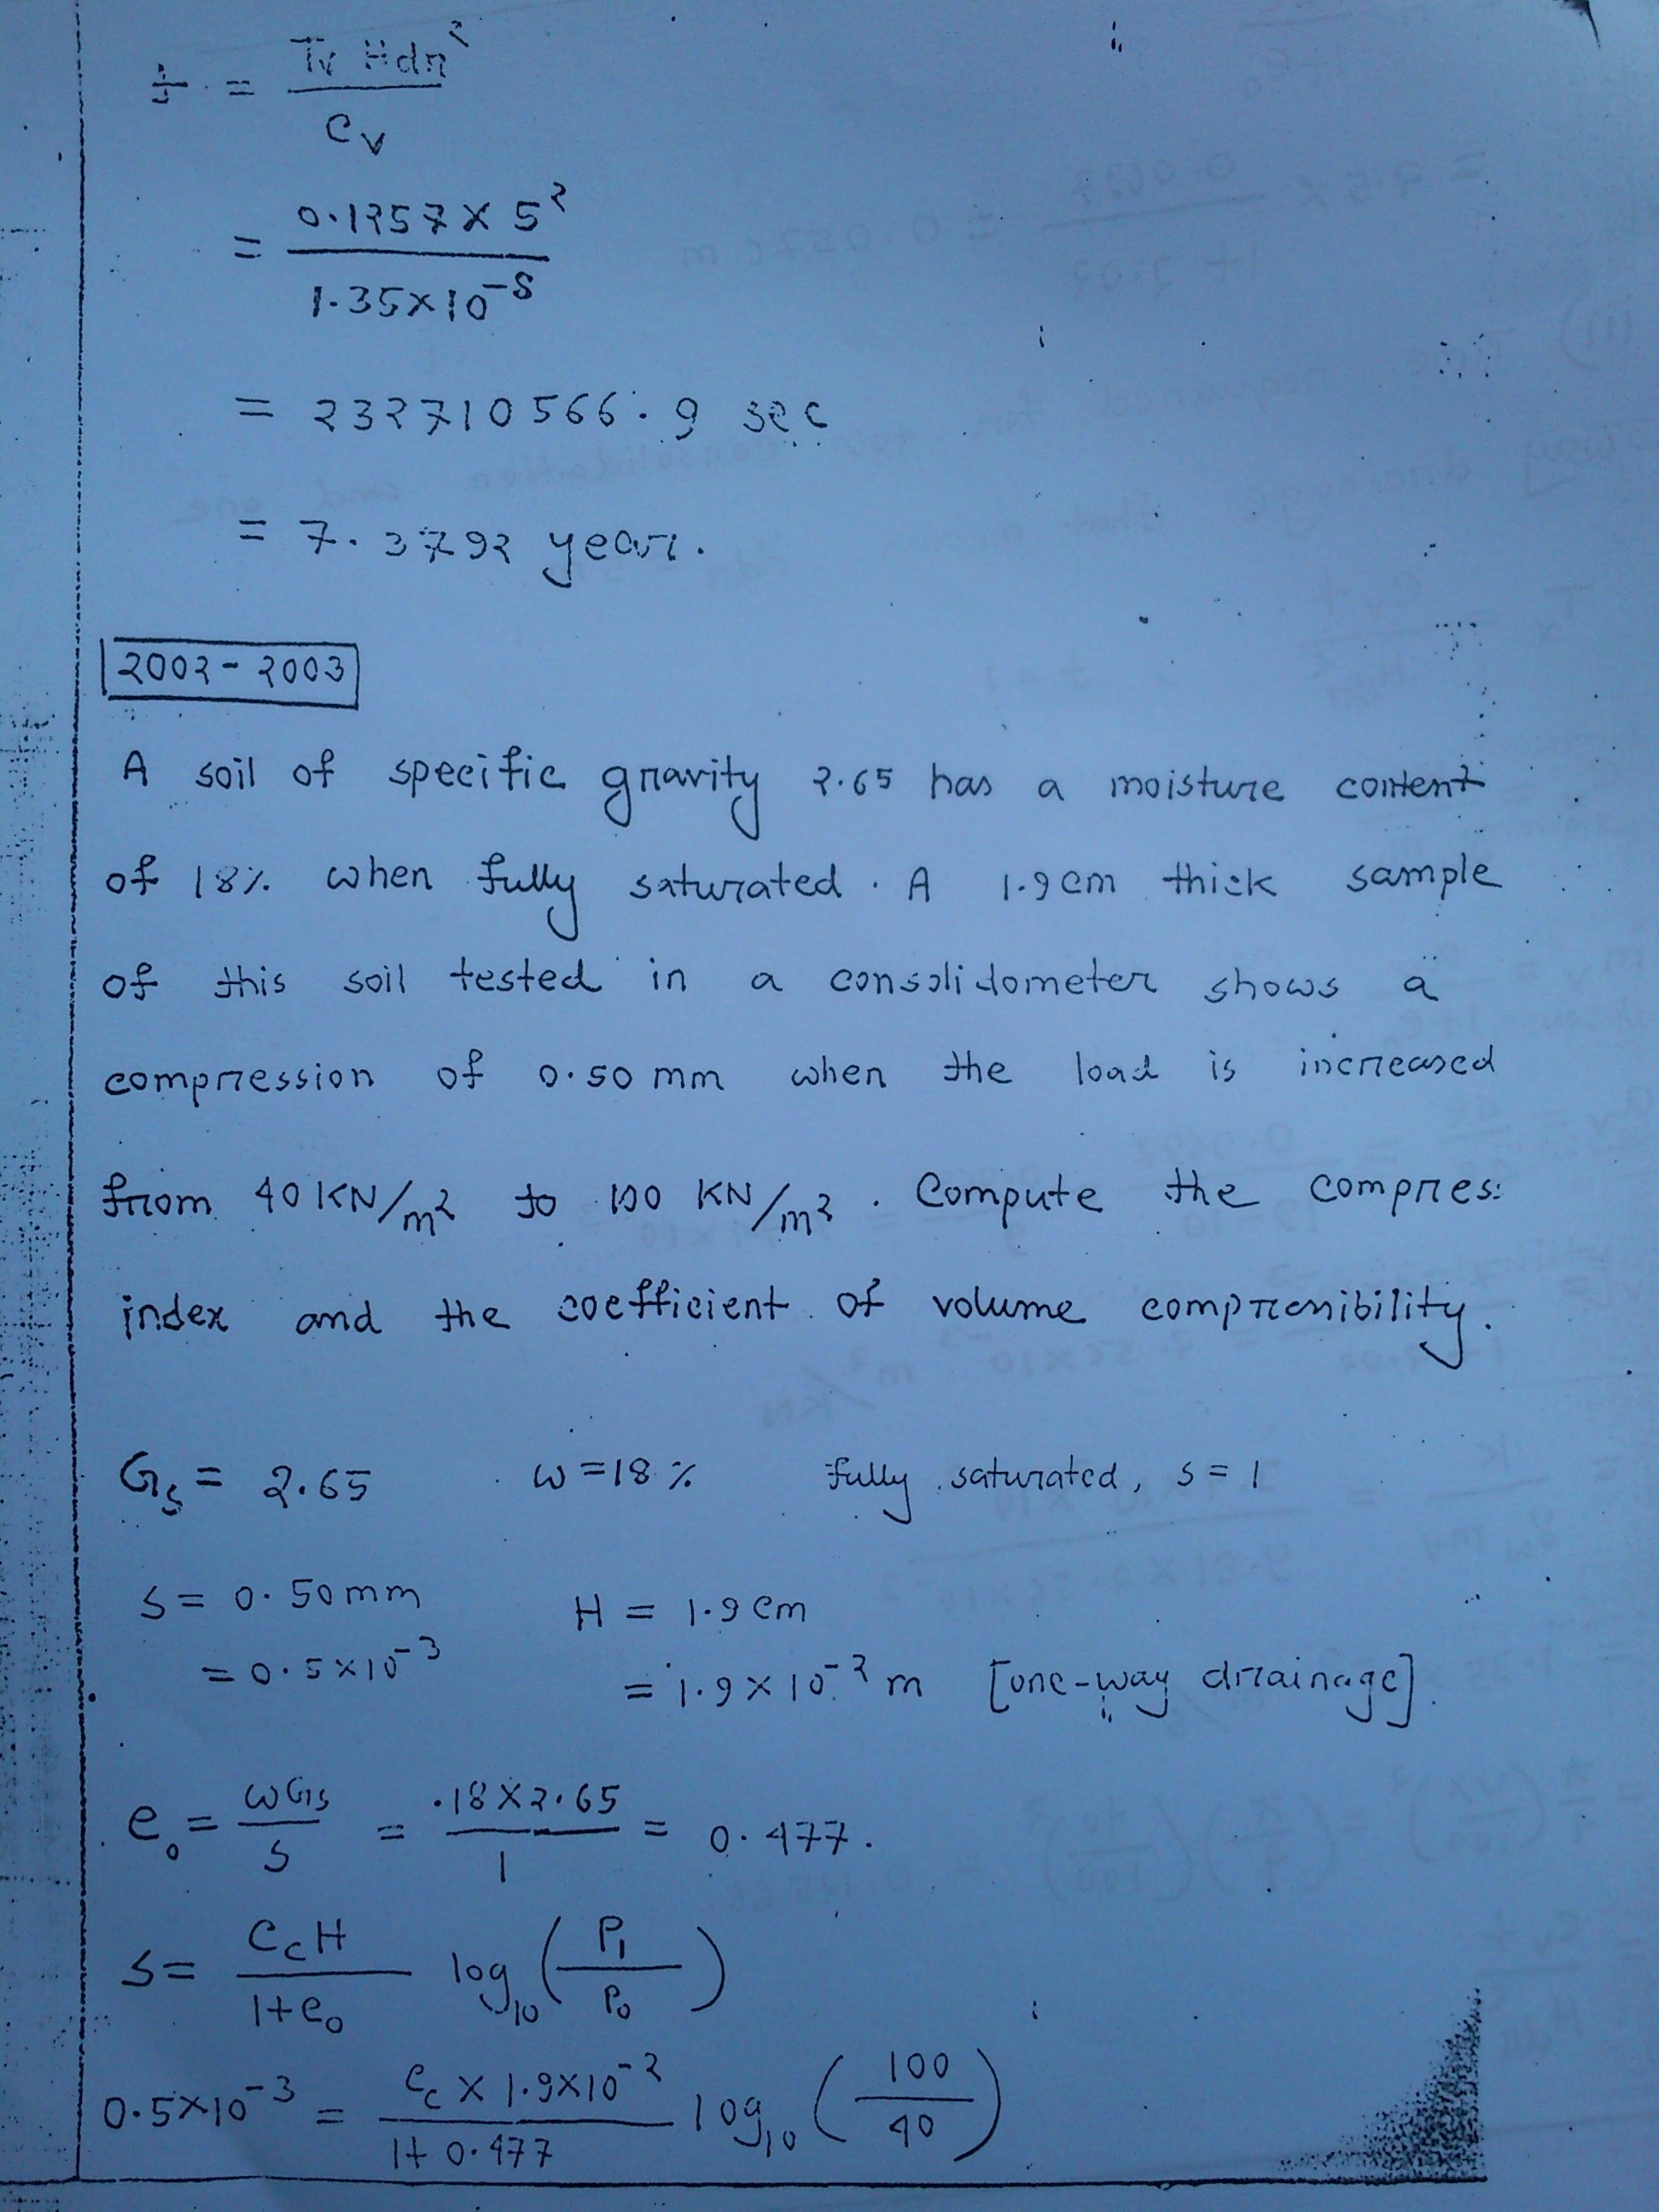 t = Tv Hdr² / Cv
= 0.1257 × 5² / 1.35×10⁻⁸
= 232710566.9 sec
= 7.3792 year.
2002 - 2003
A soil of specific gravity 2.65 has a moisture content
of 18% when fully saturated. A 1.9cm thick sample
of this soil tested in a consolidometer shows a
compression of 0.50 mm when the load is increased
from 40 KN/m² to 100 KN/m². Compute the compres
index and the coefficient of volume compressibility.
Gs = 2.65 ω = 18% fully saturated, s = 1
S = 0.50mm H = 1.9cm
= 0.5×10⁻³ = 1.9×10⁻² m [one-way drainage]
e₀ = ωGs / S = .18×2.65 / 1 = 0.477.
S = CcH / 1+e₀ log₁₀ (P₁ / P₀)
0.5×10⁻³ = Cc × 1.9×10⁻² / 1+0.477 log₁₀ (100 / 40)